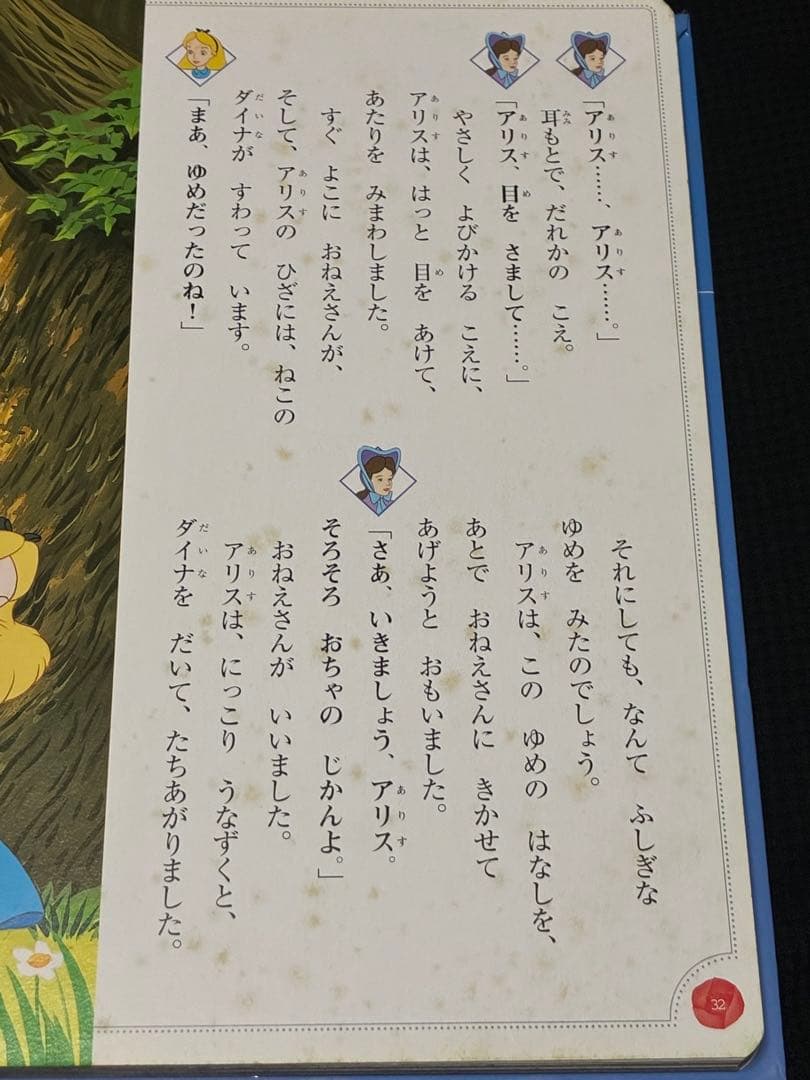 「アリス……、アリス……。」
耳もとで、だれかの こえ。
「アリス、目を さまして……。」
やさしく よびかける こえに、
アリスは、はっと 目を あけて、
あたりを みまわしました。
すぐ よこに おねえさんが、
そして、アリスの ひざには、ねこの
ダイナが すわって います。
「まあ、ゆめだったのね！」
それにしても、なんて ふしぎな
ゆめを みたのでしょう。
アリスは、この ゆめの はなしを、
あとで おねえさんに きかせて
あげようと おもいました。
「さあ、いきましょう、アリス。
そろそろ おちゃの じかんよ。」
おねえさんが いいました。
アリスは、にっこり うなずくと、
ダイナを だいて、たちあがりました。
32